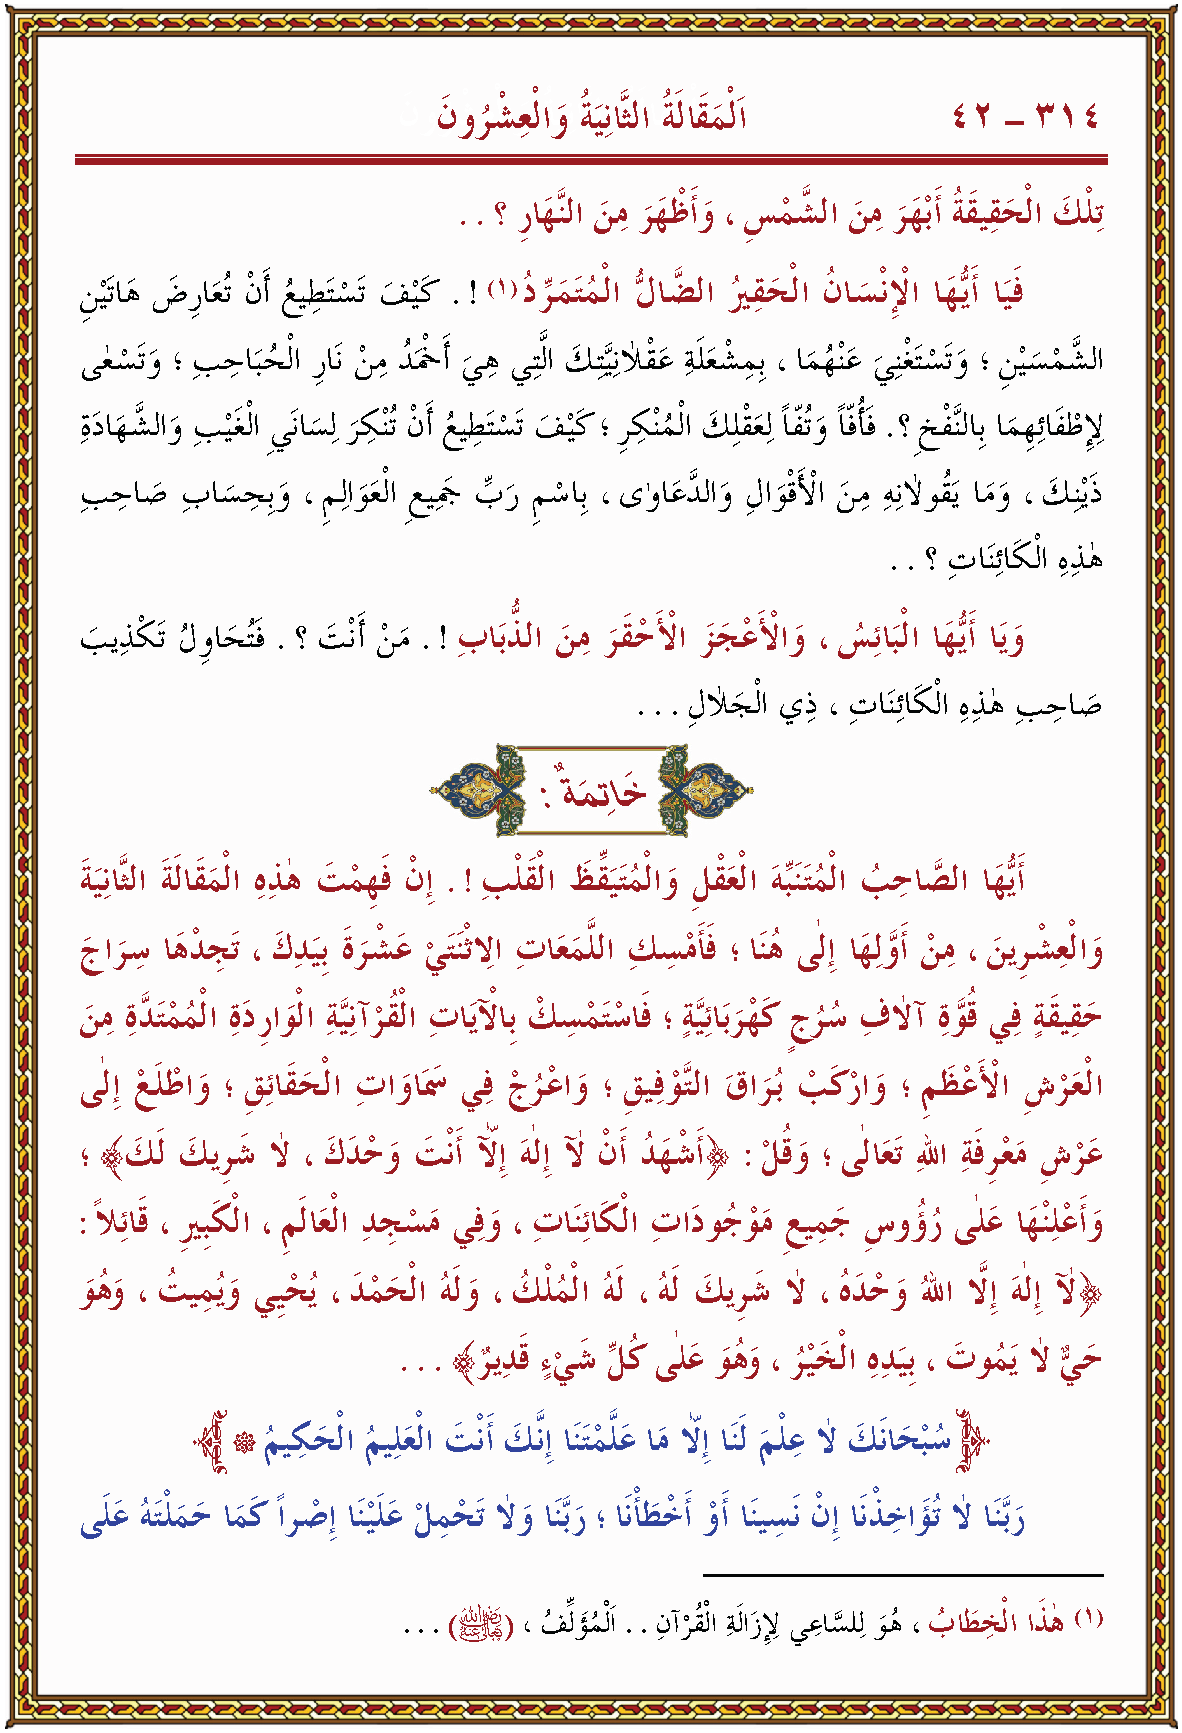 ٣١٤ – ٤٢ اَلْمَقَالَةُ الثَّانِيَةُ وَالْعِشْرُونَ
تِلْكَ الْحَقِيقَةُ أَبْهَرَ مِنَ الشَّمْسِ ، وَأَظْهَرَ مِنَ النَّهَارِ ؟ . .
فَيَا أَيُّهَا الْإِنْسَانُ الْحَقِيرُ الضَّالُّ الْمُتَمَرِّدُ (١) ! . كَيْفَ تَسْتَطِيعُ أَنْ تُعَارِضَ هَاتَيْنِ
الشَّمْسَيْنِ ؛ وَتَسْتَغْنِيَ عَنْهُمَا ، بِشِمْعَلَةِ عَقْلَانِيَّتِكَ الَّتِي هِيَ أَخْمَدُ مِنْ نَارِ الْحُبَاحِبِ ؛ وَتَسْعٰى
لِإِطْفَائِهِمَا بِالنَّفْخِ ؟. فَأُفّاً وَتُفّاً لِعَقْلِكَ الْمُنْكِرِ ؛ كَيْفَ تَسْتَطِيعُ أَنْ تُنْكِرَ لِسَانَيِ الْغَيْبِ وَالشَّهَادَةِ
ذَيْنِكَ ، وَمَا يَقُولَانِهِ مِنَ الْأَقْوَالِ وَالدَّعَاوٰى ، بِاسْمِ رَبِّ جَمِيعِ الْعَوَالِمِ ، وَبِحِسَابِ صَاحِبِ
هٰذِهِ الْكَائِنَاتِ ؟ . .
وَيَا أَيُّهَا الْبَائِسُ ، وَالْأَعْجَزَ الْأَحْقَرَ مِنَ الذُّبَابِ ! . مَنْ أَنْتَ ؟ . فَتُحَاوِلُ تَكْذِيبَ
صَاحِبِ هٰذِهِ الْكَائِنَاتِ ، ذِي الْجَلَالِ . . .
خَاتِمَةٌ :
أَيُّهَا الصَّاحِبُ الْمُتَنَبِّهَ الْعَقْلِ وَالْمُتَيَقِّظَ الْقَلْبِ ! . إِنْ فَهِمْتَ هٰذِهِ الْمَقَالَةَ الثَّانِيَةَ
وَالْعِشْرِينَ ، مِنْ أَوَّلِهَا إِلٰى هُنَا ؛ فَأَمْسِكِ اللَّمَعَاتِ الِاثْنَتَيْ عَشْرَةَ بِيَدِكَ ، تَجِدْهَا سِرَاجَ
حَقِيقَةٍ فِي قُوَّةِ آلَافِ سُرُجٍ كَهْرَبَائِيَّةٍ ؛ فَاسْتَمْسِكْ بِالْآيَاتِ الْقُرْآنِيَّةِ الْوَارِدَةِ الْمُمْتَدَّةِ مِنَ
الْعَرْشِ الْأَعْظَمِ ؛ وَارْكَبْ بُرَاقَ التَّوْفِيقِ ؛ وَاعْرُجْ فِي سَمَاوَاتِ الْحَقَائِقِ ؛ وَاطْلَعْ إِلٰى
عَرْشِ مَعْرِفَةِ اللهِ تَعَالٰى ؛ وَقُلْ : ﴿أَشْهَدُ أَنْ لٰٓا إِلٰهَ إِلَّآ أَنْتَ وَحْدَكَ ، لَا شَرِيكَ لَكَ﴾ ؛
وَأَعْلِنْهَا عَلٰى رُؤُوسِ جَمِيعِ مَوْجُودَاتِ الْكَائِنَاتِ ، وَفِي مَسْجِدِ الْعَالَمِ ، الْكَبِيرِ ، قَائِلاً :
﴿لٰٓا إِلٰهَ إِلَّا اللهُ وَحْدَهُ ، لَا شَرِيكَ لَهُ ، لَهُ الْمُلْكُ ، وَلَهُ الْحَمْدَ ، يُحْيِي وَيُمِيتُ ، وَهُوَ
حَيٌّ لَا يَمُوتَ ، بِيَدِهِ الْخَيْرُ ، وَهُوَ عَلٰى كُلِّ شَيْءٍ قَدِيرٌ﴾ . . .
﴿سُبْحَانَكَ لَا عِلْمَ لَنَا إِلَّا مَا عَلَّمْتَنَا إِنَّكَ أَنْتَ الْعَلِيمُ الْحَكِيمُ ۞﴾
رَبَّنَا لَا تُؤَاخِذْنَا إِنْ نَسِينَا أَوْ أَخْطَأْنَا ؛ رَبَّنَا وَلَا تَحْمِلْ عَلَيْنَا إِصْراً كَمَا حَمَلْتَهُ عَلَى
(١) هٰذَا الْخِطَابُ ، هُوَ لِلسَّاعِي لِإِزَالَةِ الْقُرْآنِ . . اَلْمُؤَلِّفُ ، (رضي الله تعالى عنه) . . .